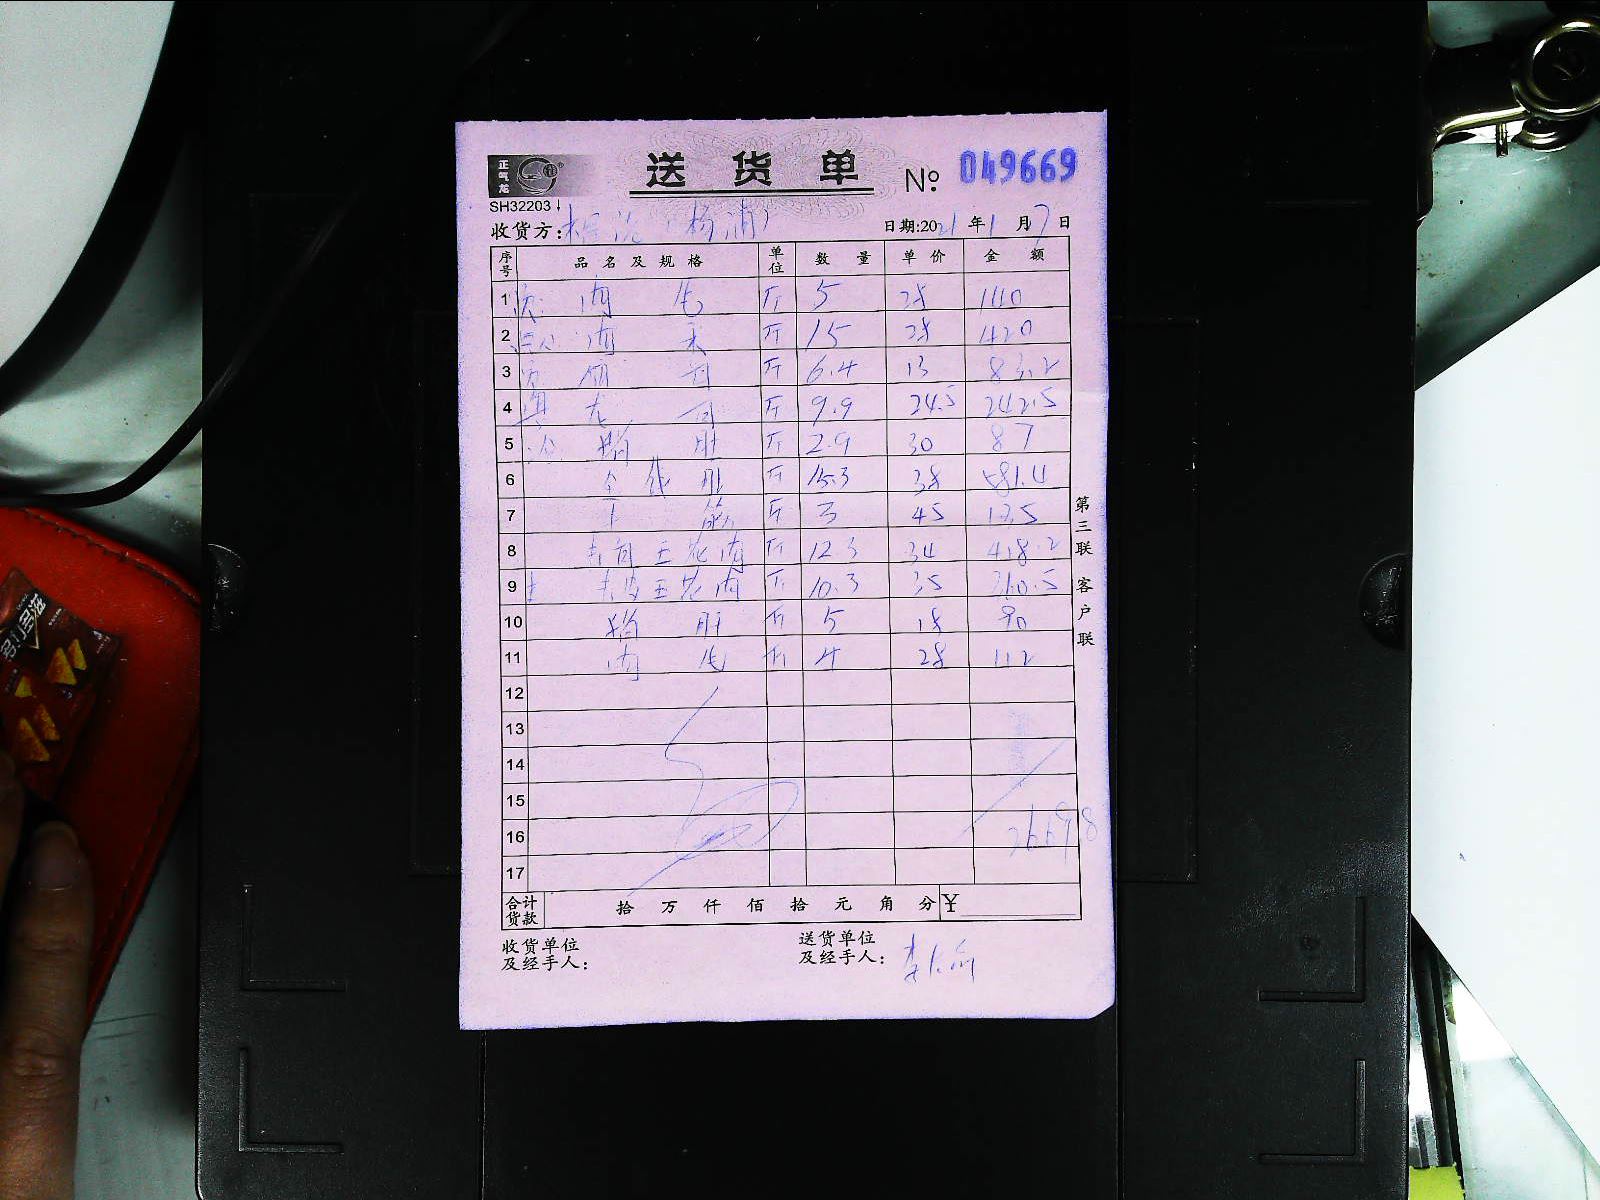 正气龙
送货单
№ 049669
SH32203
收货方: (杨浦)
日期:2021年1月7日
序号 品名及规格 单位 数量 单价 金额
1 肉 斤 5 28 140
2 肉 斤 15 28 420
3 斤 6.4 13 83.2
4 斤 9.9 24.5 242.5
5 猪肚 斤 2.9 30 87
6 金钱肚 斤 15.3 38 581.4
7 牛筋 斤 3 45 135
8 五花肉 斤 12.3 34 418.2
9 去皮五花肉 斤 10.3 35 360.5
10 猪肝 斤 5 18 90
11 肉 斤 4 28 112
12
13
14
15
16 2669.8
17
合计货款 拾 万 仟 佰 拾 元 角 分 ¥
收货单位及经手人:
送货单位及经手人: 李
第三联 客户联